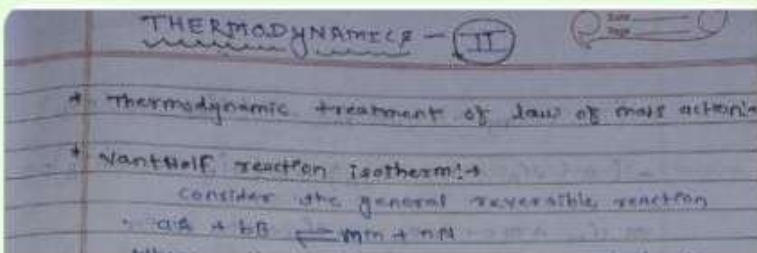 THERMODYNAMICS - II
Date
Page
* Thermodynamic treatment of law of mass action:
* VantHoff reaction isotherm:→
Consider the general reversible reaction
aA + bB ⇌ mM + nN